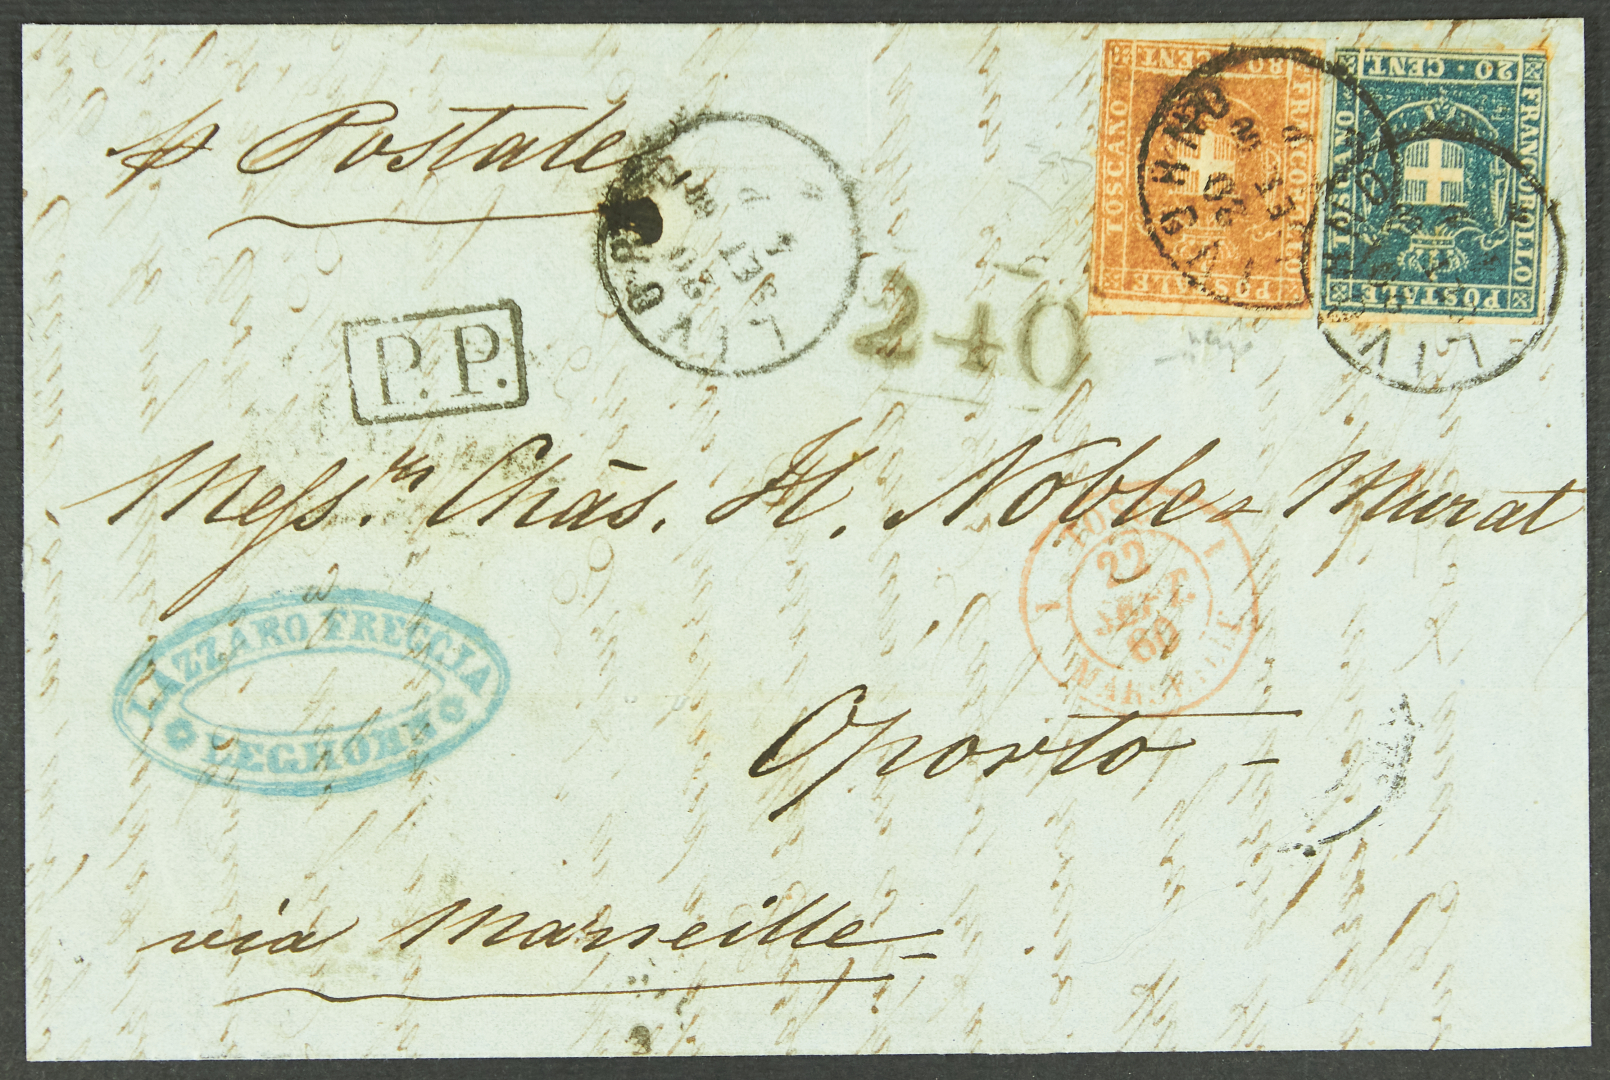 p Postale
P.P.
LIVORNO
SET
60
240
FRANCOBOLLO POSTALE TOSCANO
80 CENT
LIVORNO
60
FRANCOBOLLO POSTALE TOSCANO
20 CENT.
LIVORNO
Messrs. Chas. H. Noble & Murat
TOSC.
22
SEPT.
60
MARSEILLE
LAZZARO FRECCIA
LEGHORN
Oporto
via Marseille